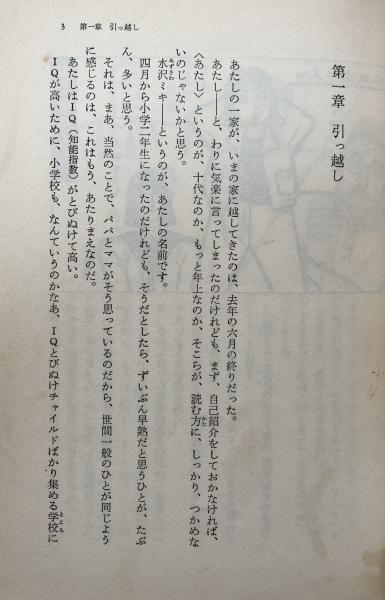 3 第一章 引っ越し
第一章 引っ越し
あたしの一家が、いまの家に越してきたのは、去年の六月の終りだった。
あたし――と、わりに気楽に言ってしまったのだけれども、まず、自己紹介をしておかなければ、
〈あたし〉というのが、十代なのか、もっと年上なのか、そこらが、読む方に、しっかり、つかめな
いのじゃないかと思う。
水沢ミキ――というのが、あたしの名前です。
四月から小学二年生になったのだけれども、そうだとしたら、ずいぶん早熟だと思うひとが、たぶ
ん、多いと思う。
それは、まあ、当然のことで、パパとママがそう思っているのだから、世間一般のひとが同じよう
に感じるのは、これはもう、あたりまえなのだ。
あたしはＩＱ（知能指数）がとびぬけて高い。
ＩＱが高いために、小学校も、なんていうのかなあ、ＩＱとびぬけチャイルドばかり集める学校に